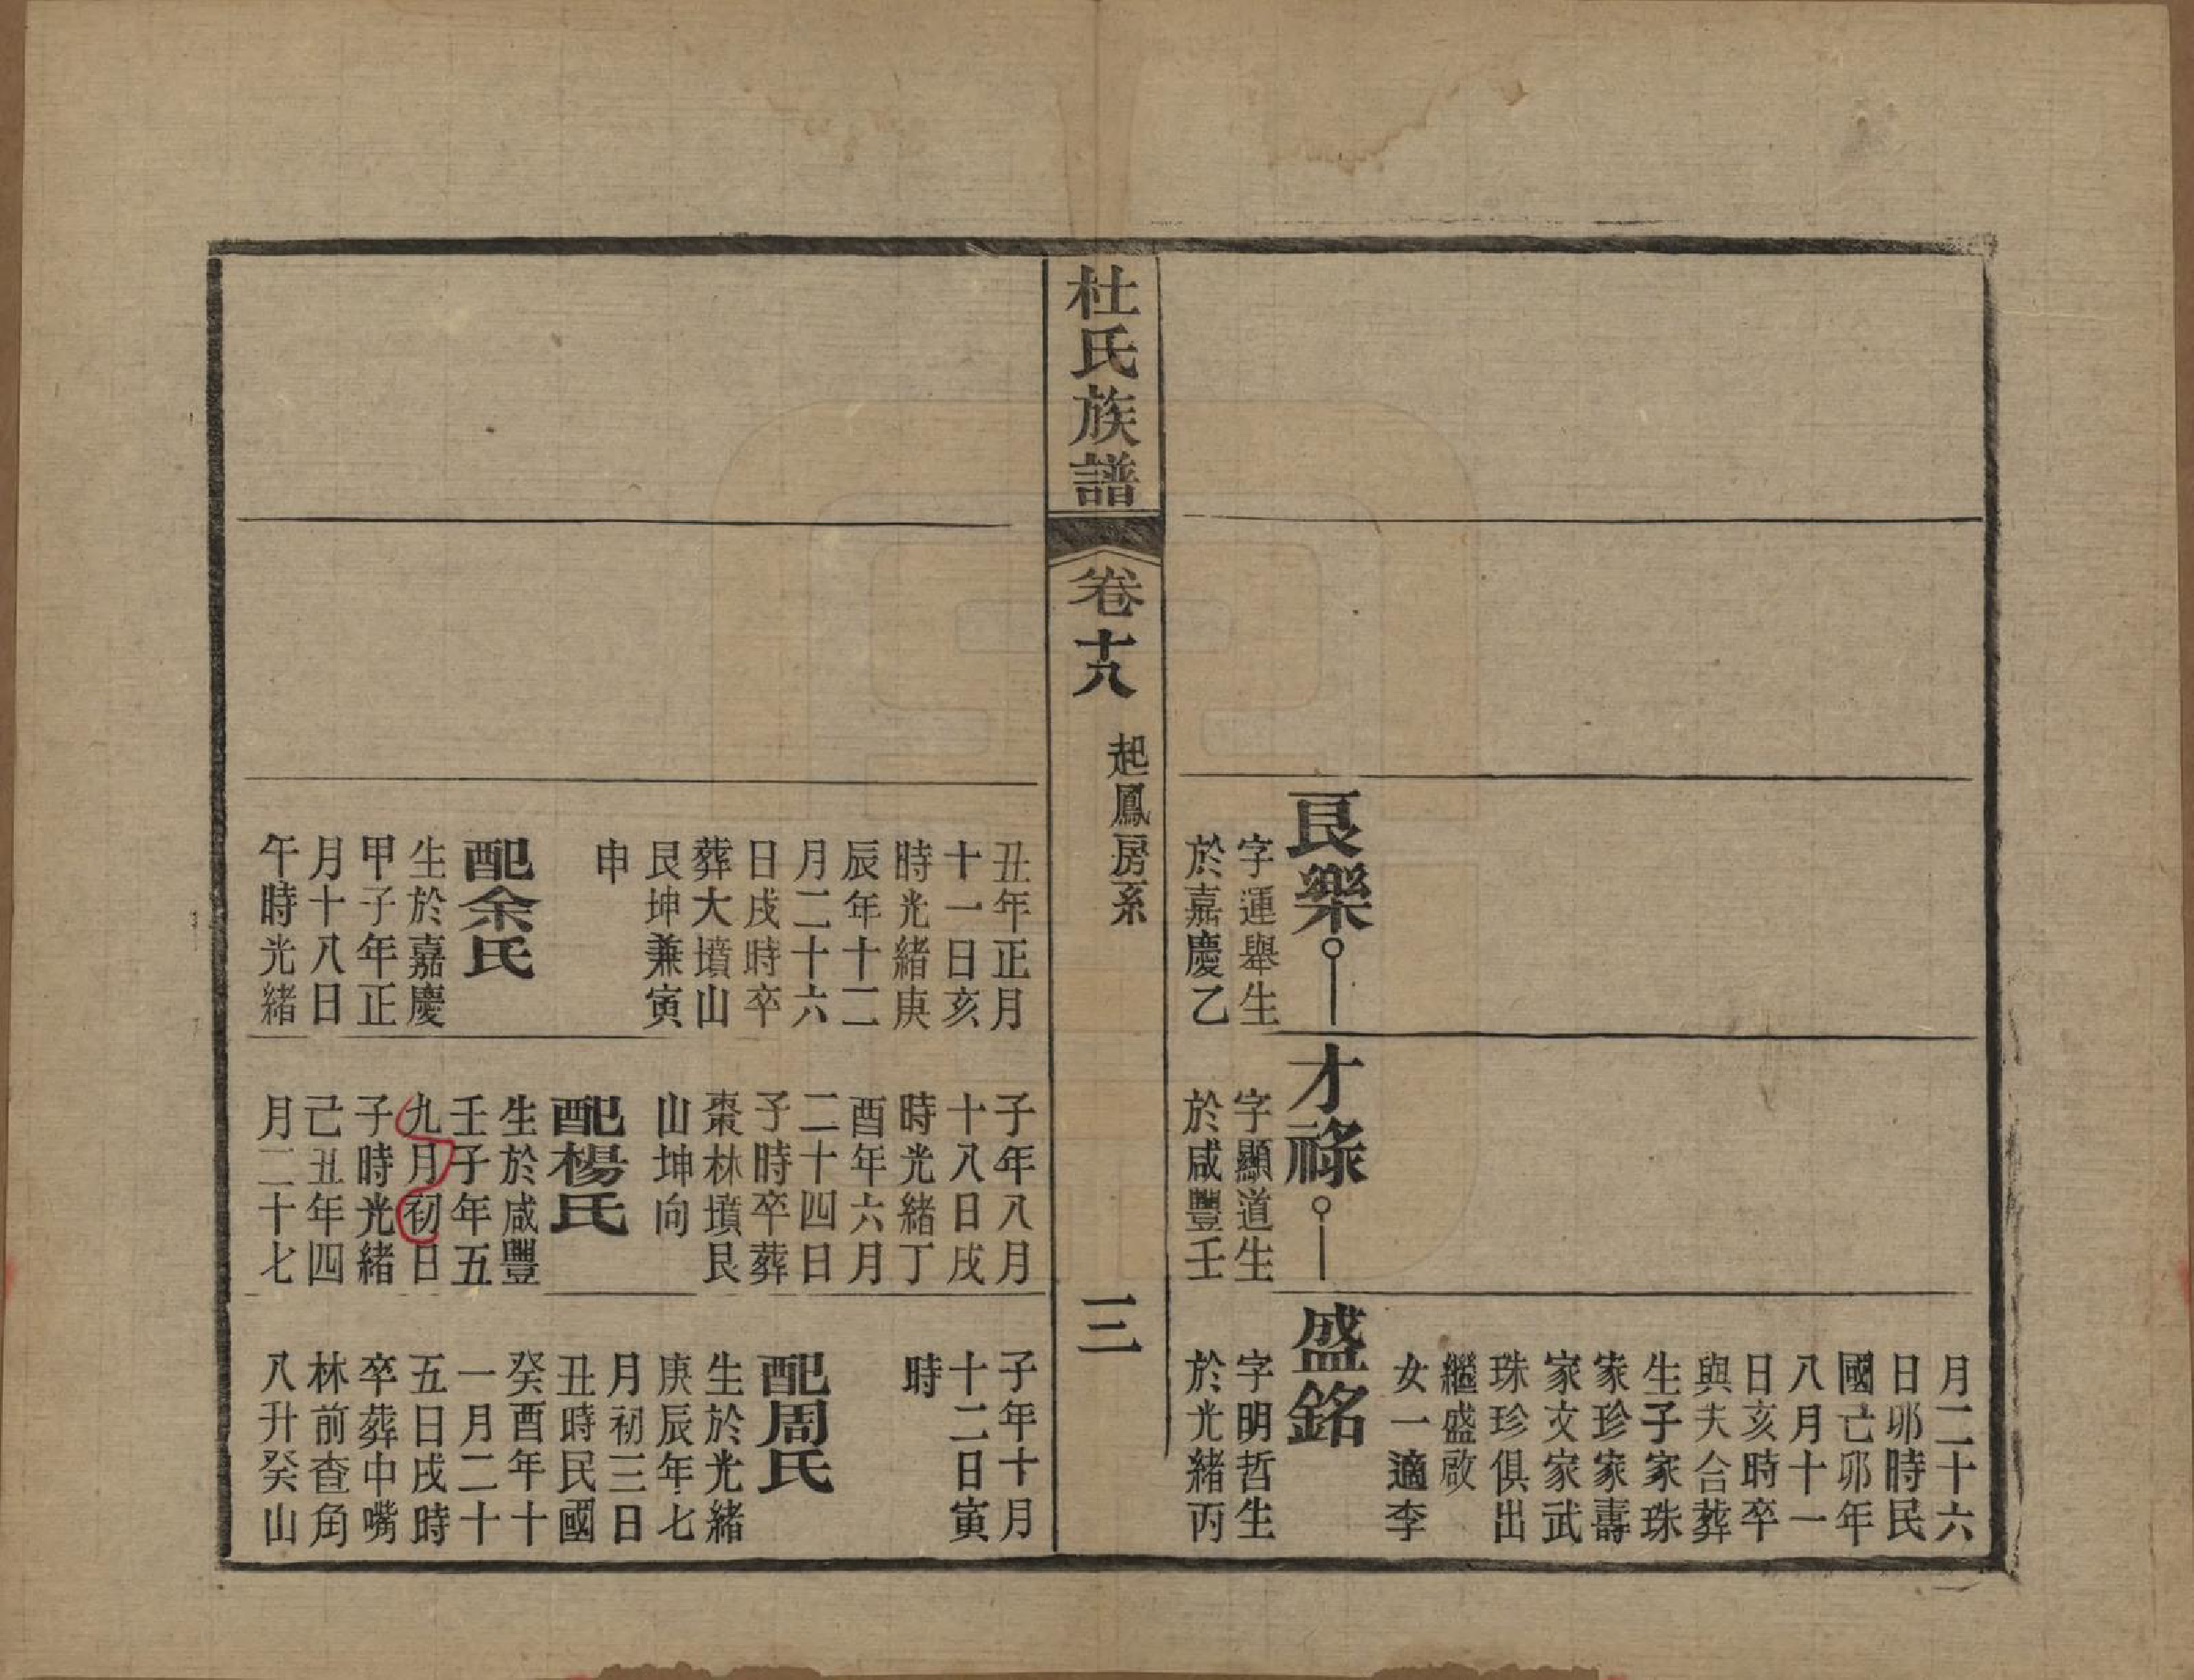 良樂
字運舉生
於嘉慶乙
才祿
字顯道生
於咸豐壬
月二十六
日卯時民
國己卯年
八月十一
日亥時卒
與夫合葬
生子家珠
家珍家壽
家文家武
珠珍俱出
繼盛啟
女一適李
盛銘
字明哲生
於光緒丙
杜氏族譜
卷十八
起鳳房系
三
丑年正月
十一日亥
時光緒庚
辰年十二
月二十六
日戌時卒
葬大墳山
艮坤兼寅
申
配余氏
生於嘉慶
甲子年正
月十八日
午時光緒
子年八月
十八日戌
時光緒丁
酉年六月
二十四日
子時卒葬
棗林墳艮
山坤向
配楊氏
生於咸豐
壬子年五
九月初日
子時光緒
己丑年四
月二十七
子年十月
十二日寅
時
配周氏
生於光緒
庚辰年七
月初三日
丑時民國
癸酉年十
一月二十
五日戌時
卒葬中嘴
林前查角
八升癸山